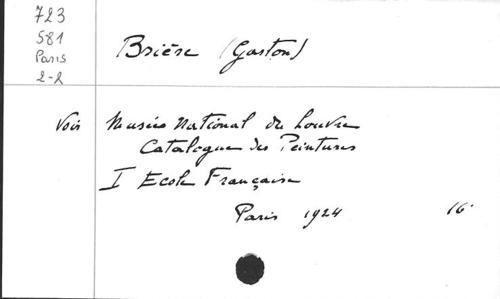 723
581
Paris
2-2
Brière (Gaston)
Voir Musées National du Louvre
Catalogue des Peintures
I Ecole Française
Paris 1924 16°